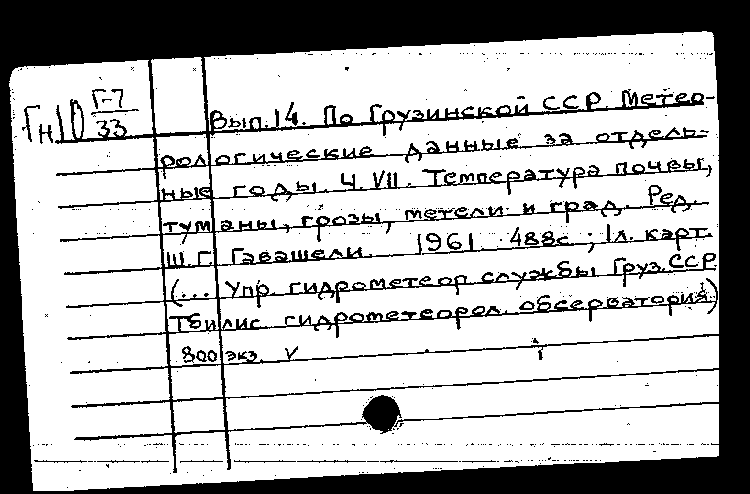 Гн10 Г-7
33
Вып.14. По Грузинской ССР. Метео-
рологические данные за отдель-
ные годы. Ч. VII. Температура почвы,
туманы, грозы, метели и град. Ред.
Ш.Г. Гавашели. 1961. 488с.; 1л. карт.
(... Упр. гидрометеор. службы Груз.ССР
Тбилис. гидрометеорол. обсерватория)
800 экз. V